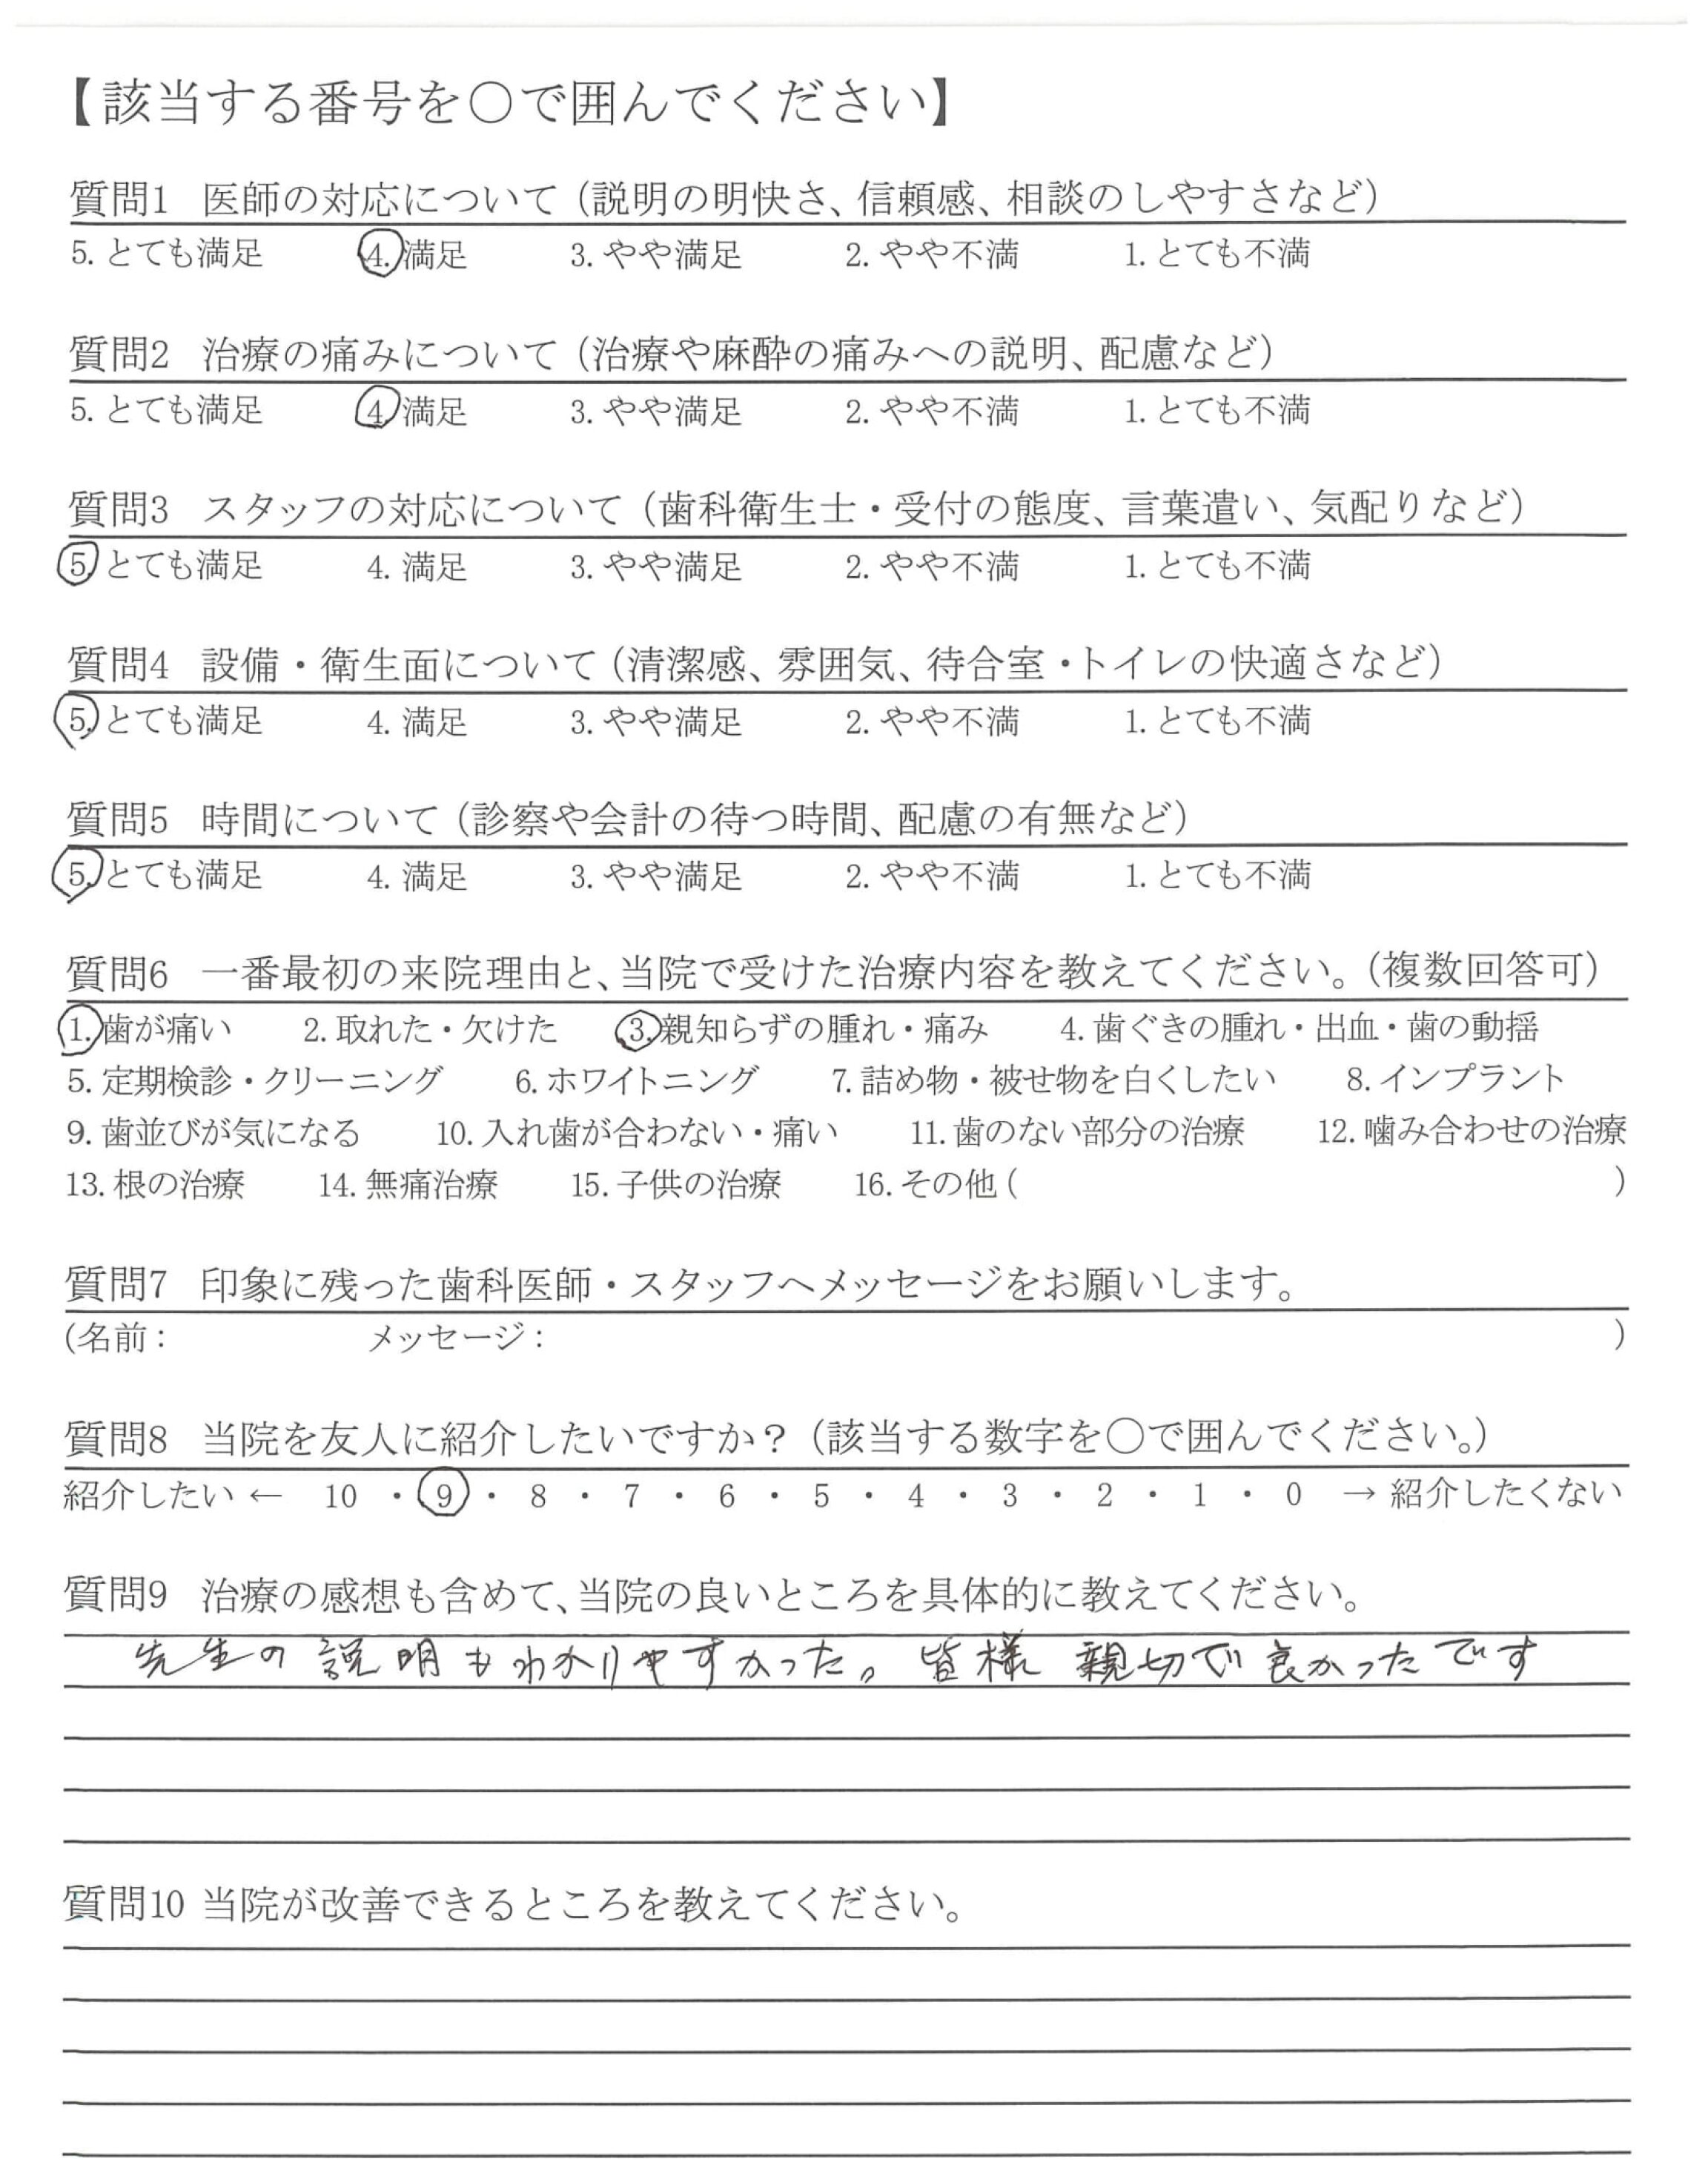 【該当する番号を〇で囲んでください】
質問1 医師の対応について（説明の明快さ、信頼感、相談のしやすさなど）
5. とても満足 4. 満足 3. やや満足 2. やや不満 1. とても不満
質問2 治療の痛みについて（治療や麻酔の痛みへの説明、配慮など）
5. とても満足 4. 満足 3. やや満足 2. やや不満 1. とても不満
質問3 スタッフの対応について（歯科衛生士・受付の態度、言葉遣い、気配りなど）
5. とても満足 4. 満足 3. やや満足 2. やや不満 1. とても不満
質問4 設備・衛生面について（清潔感、雰囲気、待合室・トイレの快適さなど）
5. とても満足 4. 満足 3. やや満足 2. やや不満 1. とても不満
質問5 時間について（診察や会計の待つ時間、配慮の有無など）
5. とても満足 4. 満足 3. やや満足 2. やや不満 1. とても不満
質問6 一番最初の来院理由と、当院で受けた治療内容を教えてください。（複数回答可）
1. 歯が痛い 2. 取れた・欠けた 3. 親知らずの腫れ・痛み 4. 歯ぐきの腫れ・出血・歯の動揺
5. 定期検診・クリーニング 6. ホワイトニング 7. 詰め物・被せ物を白くしたい 8. インプラント
9. 歯並びが気になる 10. 入れ歯が合わない・痛い 11. 歯のない部分の治療 12. 噛み合わせの治療
13. 根の治療 14. 無痛治療 15. 子供の治療 16. その他 ( )
質問7 印象に残った歯科医師・スタッフへメッセージをお願いします。
（名前： メッセージ： ）
質問8 当院を友人に紹介したいですか？（該当する数字を〇で囲んでください。）
紹介したい ← 10 ・ 9 ・ 8 ・ 7 ・ 6 ・ 5 ・ 4 ・ 3 ・ 2 ・ 1 ・ 0 → 紹介したくない
質問9 治療の感想も含めて、当院の良いところを具体的に教えてください。
先生の説明もわかりやすかった。皆様 親切で良かったです
質問10 当院が改善できるところを教えてください。